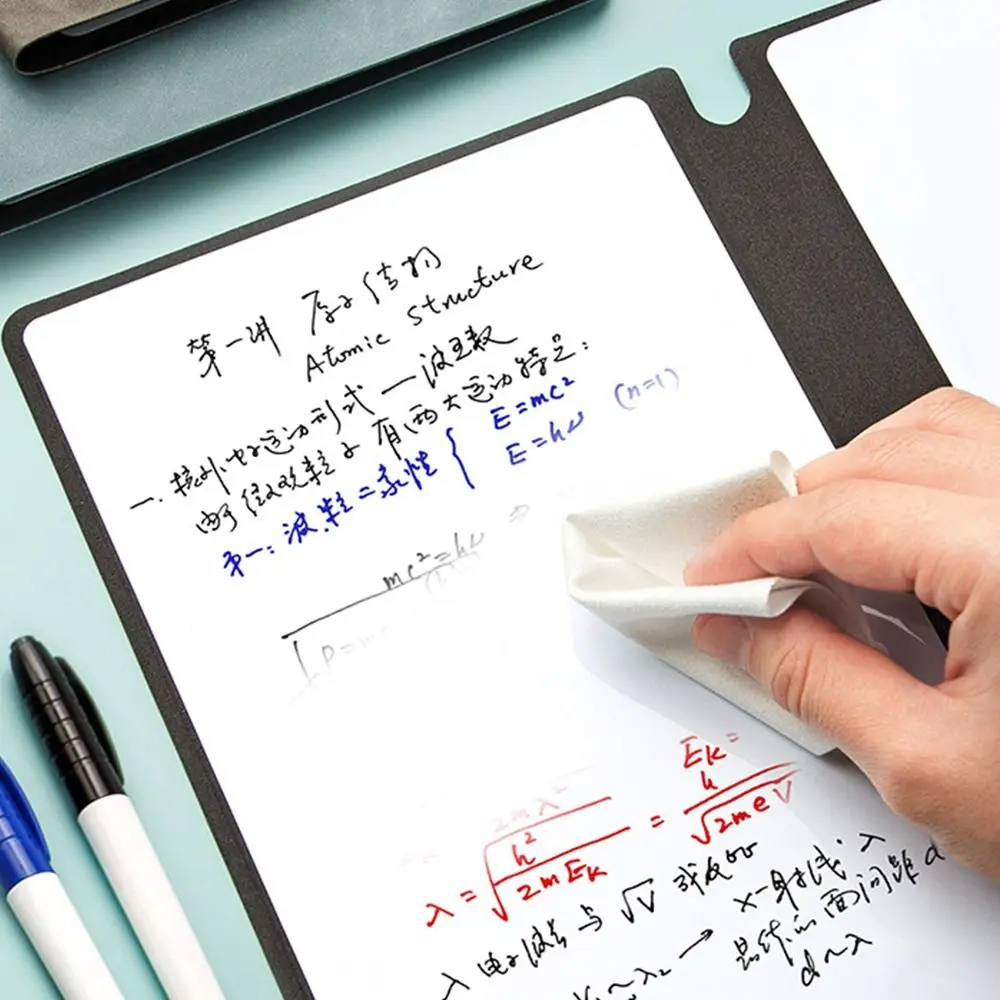 第一讲 原子结构
Atomic Structure
一. 核外电子运动形式 — 波函数
由于微观粒子有两大运动特点:
第一: 波粒二象性 { E=mc² (n=1)
E=hν
mc²=hν ⇒
P=mc
2mλ²
Eₖ=
λ=√(h²/2mEₖ) = h/√(2meV)
λ电子波长与√V 成反比
X-射线 λ
→ 晶体的面间距 d
V₁~λ₂ d~λ